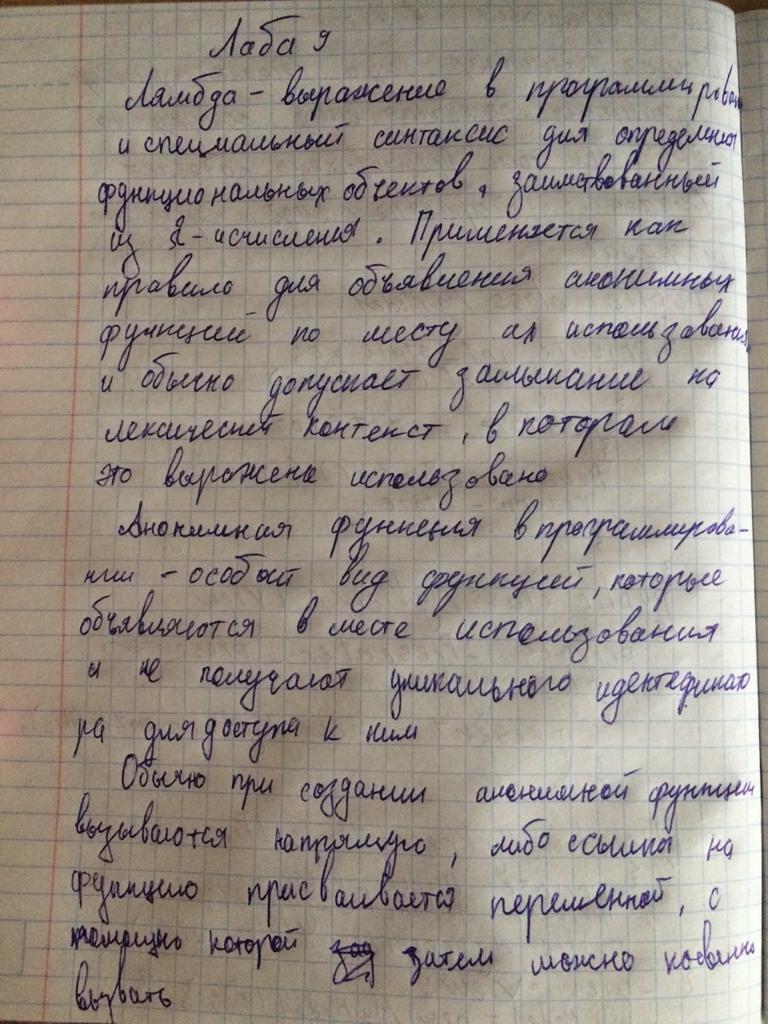 Лаба 9
Лямбда - выражение в программирован
и специальный синтаксис для определения
функциональных объектов, заимствованный
из λ-исчисления. Применяется как
правило для объявления анонимных
функций по месту их использования
и обычно допускает замыкание на
лексический контекст, в котором
это выражено использовано
Анонимная функция в программирова-
нии - особый вид функций, которые
объявляются в месте использования
и не получают уникального идентефикато
ра для доступа к ним
Обычно при создании анонимной функции
вызываются напрямую, либо ссылка на
функцию присваивается переменной, с
помощью которой затем можно косвенно
вызвать